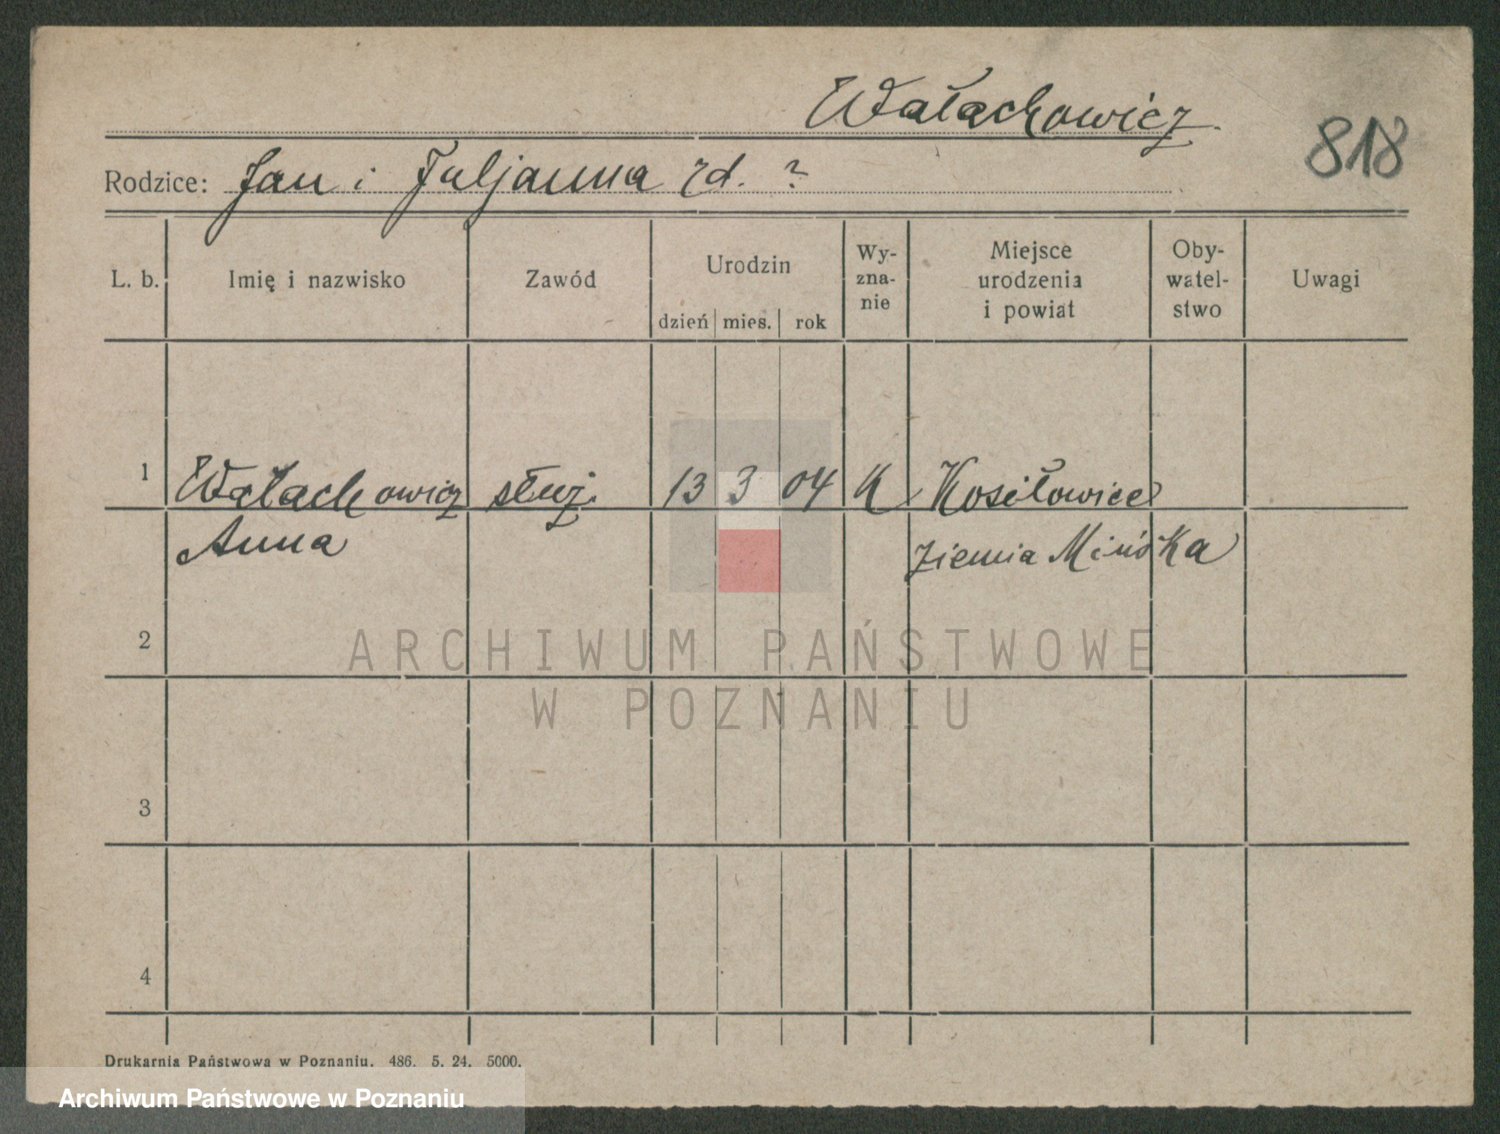 Wałachowicz
818
Rodzice: Jan i Juljanna zd. ?
L. b. Imię i nazwisko Zawód Urodzin dzień mies. rok Wy-zna-nie Miejsce urodzenia i powiat Oby-watel-stwo Uwagi
1 Wałachowicz służ. 13 3 04 K Kosiłowice
Anna ziemia Mińska
2
ARCHIWUM PAŃSTWOWE
W POZNANIU
3
4
Drukarnia Państwowa w Poznaniu. 486. 5. 24. 5000.
Archiwum Państwowe w Poznaniu